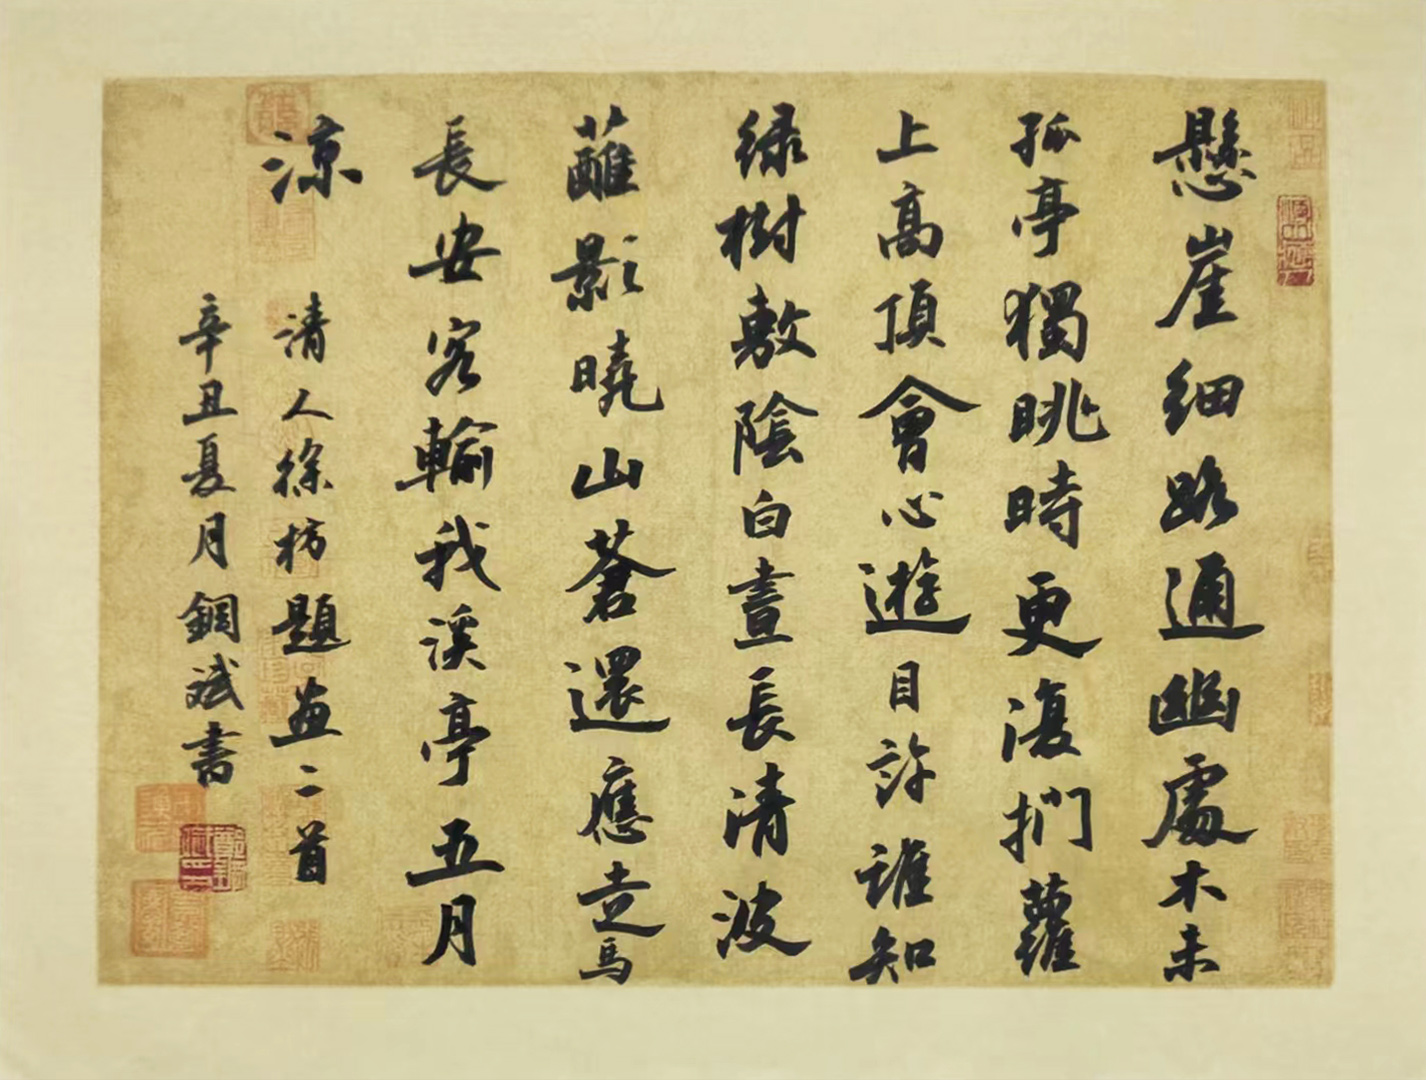 懸崖细路通幽處木末
孤亭獨眺時更復捫蘿
上高頂會心遊目許誰知
緑樹敷陰白晝長清波
蘸影曉山蒼還應走馬
長安客輸我溪亭五月
涼
清人徐枋題画二首
辛丑夏月鋼斌書